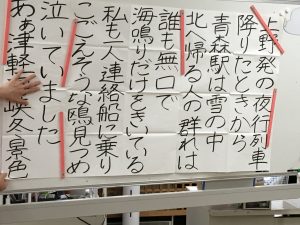 上野発の夜行列車
降りたときから
青森駅は雪の中
北へ帰る人の群れは
誰も無口で
海鳴りだけをきいている
私も一人連絡船に乗り
こごえそうな鴎見つめ
泣いていました
あぁ津軽海峡冬景色